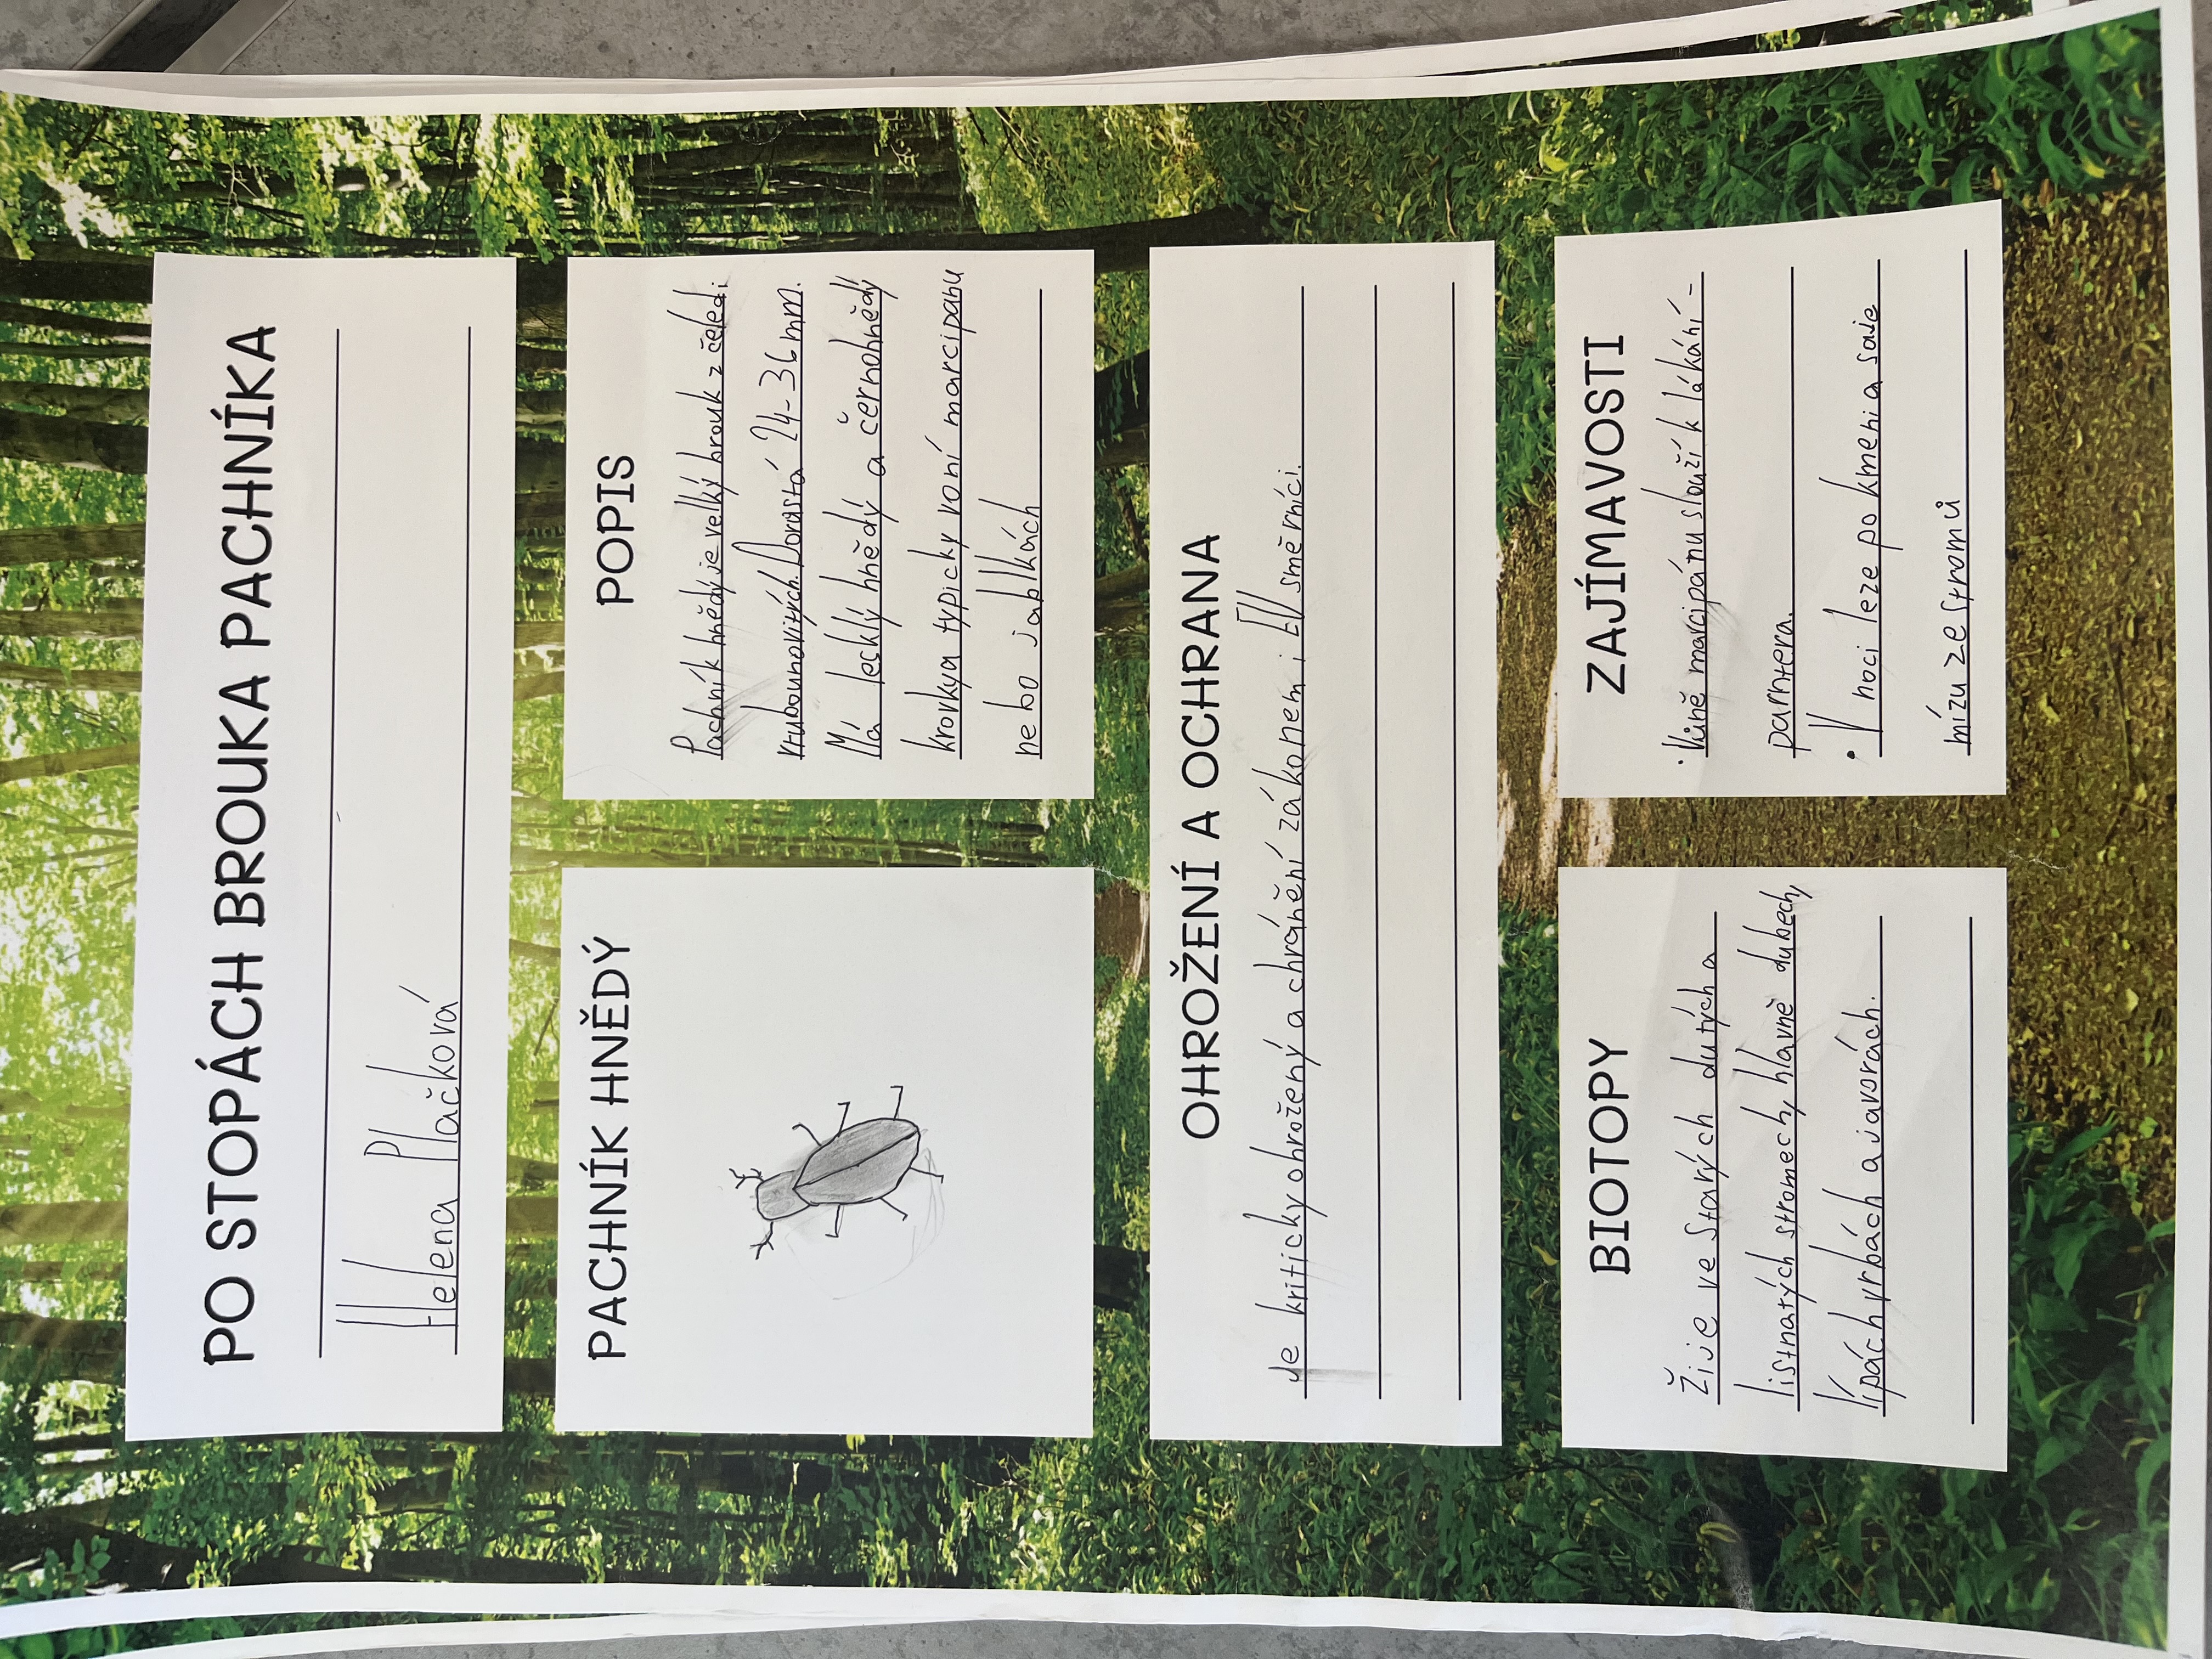 PO STOPÁCH BROUKA PACHNÍKA
Helena Plačková
PACHNÍK HNĚDÝ
POPIS
Pachník hnědý je velký brouk z čeledi
vrubounovitých. Dorostá 24-36 mm.
Má lesklý hnědý a černohnědý
krovky a typicky voní marcipanu
nebo jablkách
OHROŽENÍ A OCHRANA
Je kriticky ohrožený a chránění zákonem i EU směrnící.
BIOTOPY
Žije ve starých dutých a
listnatých stromech, hlavně dubech,
lípách vrbách a javorách.
ZAJÍMAVOSTI
• Vůně marcipánu slouží k lákání-
parntera.
• V noci leze po kmeni a saje
mízu ze stromů